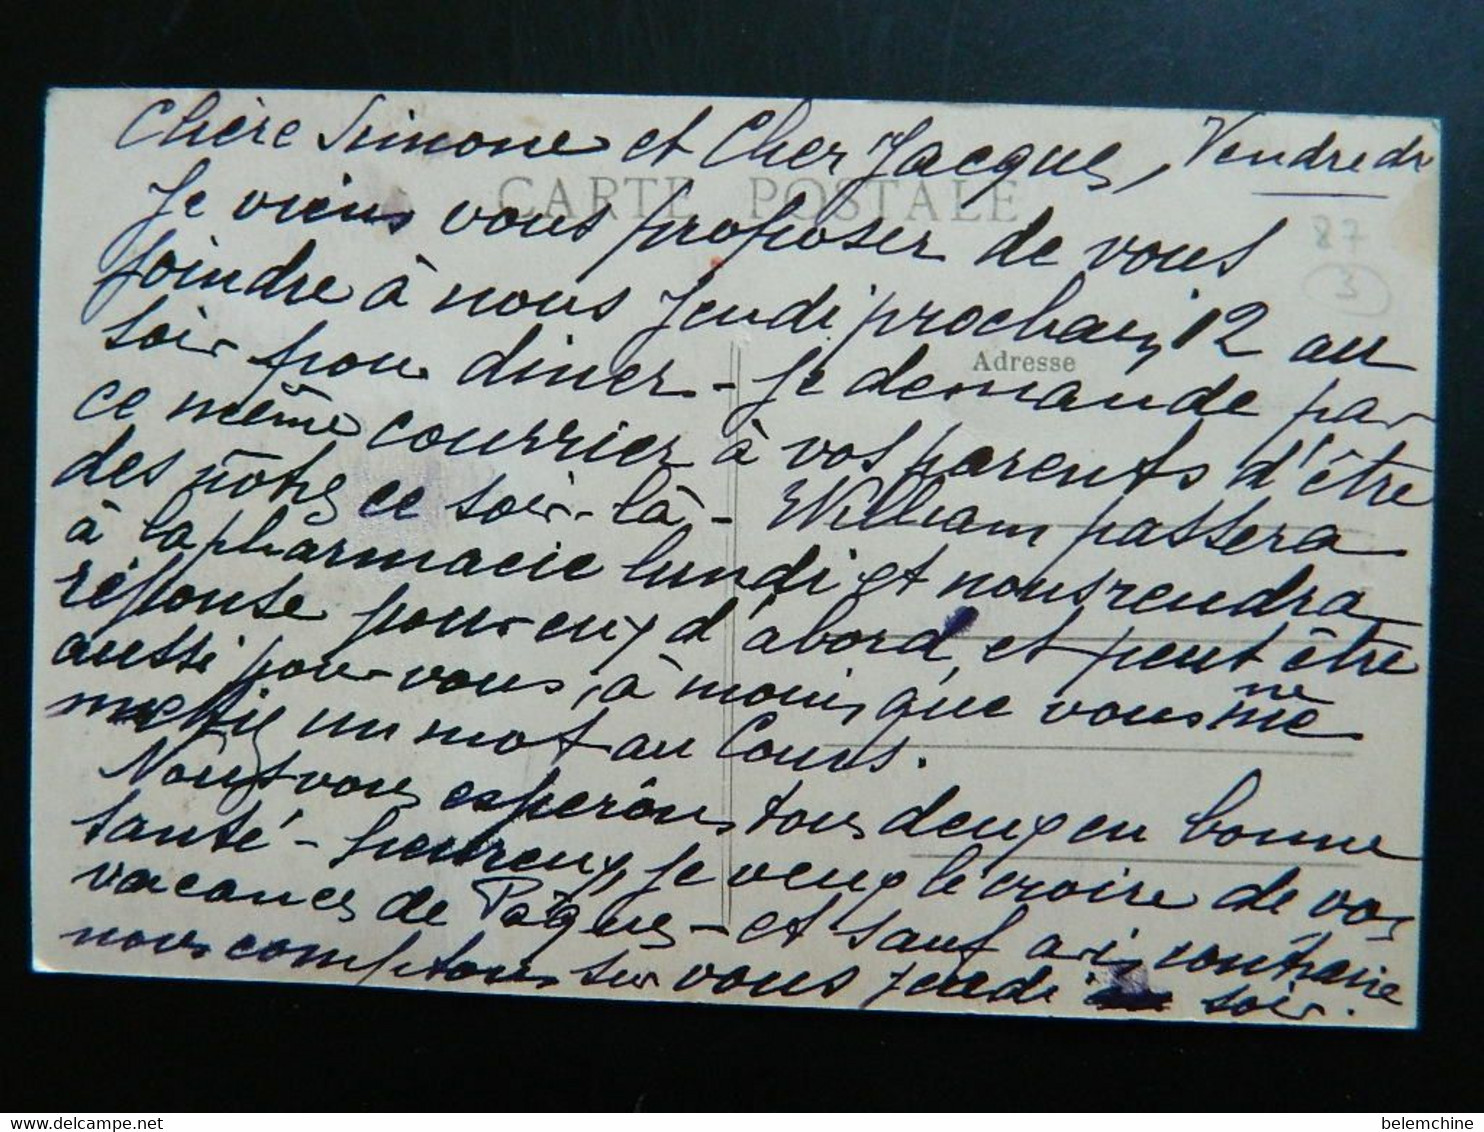 Chère Simone et Cher Jacques, Vendredi
CARTE POSTALE
Je viens vous proposer de vous
87
joindre à nous Jeudi prochain 12 au
3
Adresse
soir pour diner - Je demande par
ce même courrier à vos parents d'être
des nôtres ce soir-là - William passera
à la pharmacie lundi et nous rendra
réponse pour eux d'abord, et peut être
aussi pour vous, à moins que vous ne me
mettiez un mot au Cours.
Nous vous espérons tous deux en bonne
santé - heureux, je veux le croire de vos
vacances de Pâques - et sauf avis contraire
nous comptons sur vous jeudi soir.
belemchine